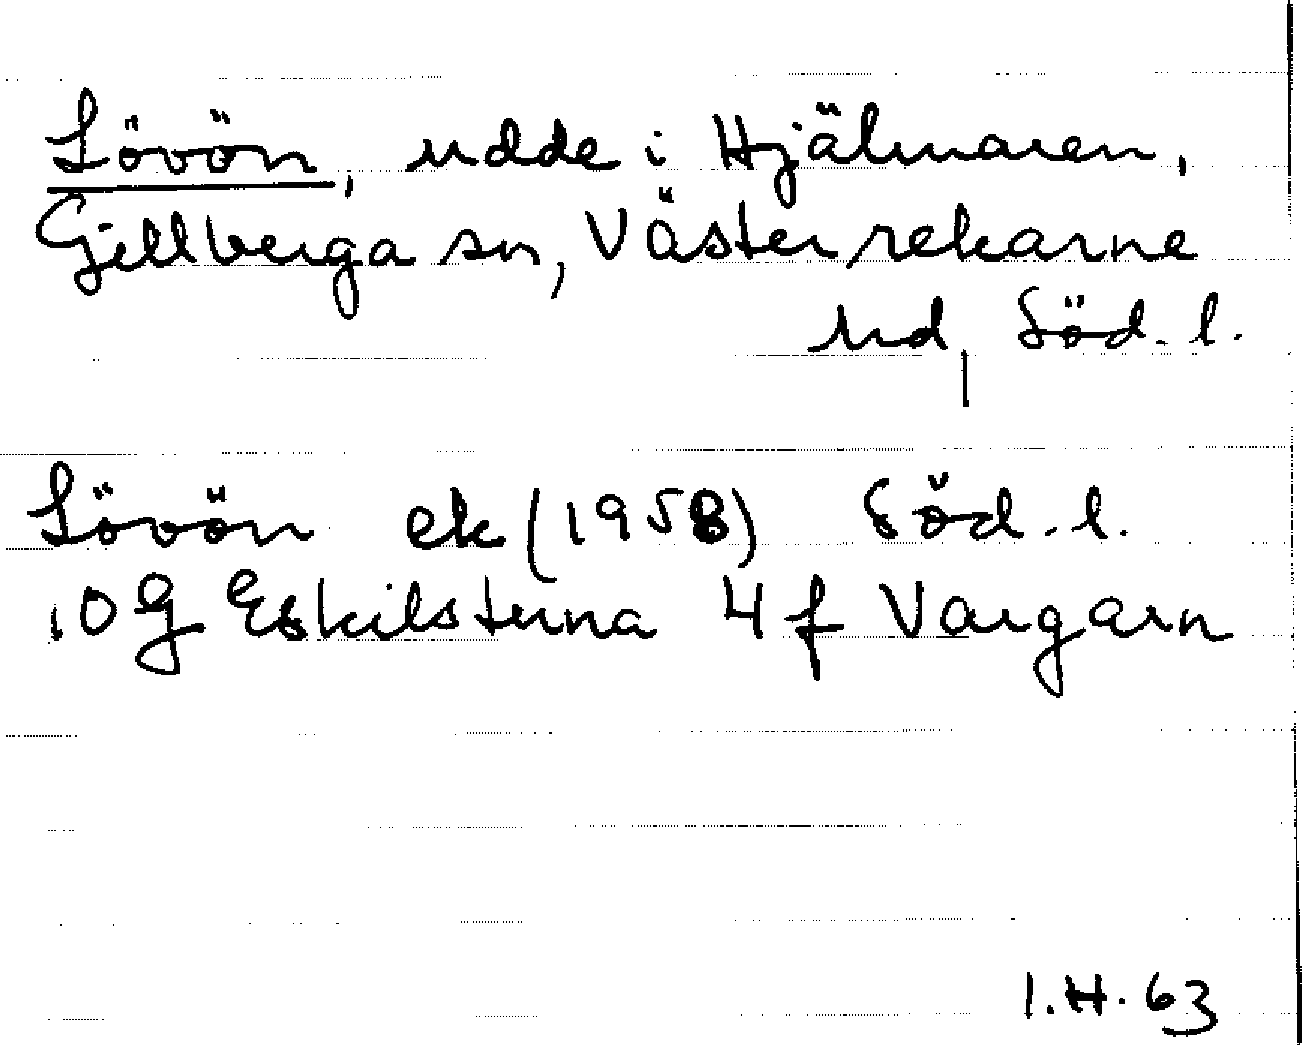 Lövön, udde i Hjälmaren,
Gillberga sn, Västerrekarne
hd, Söd. l.
Lövön ek (1958) Söd. l.
10G Eskilstuna 4f Vargarn
I.H. 63